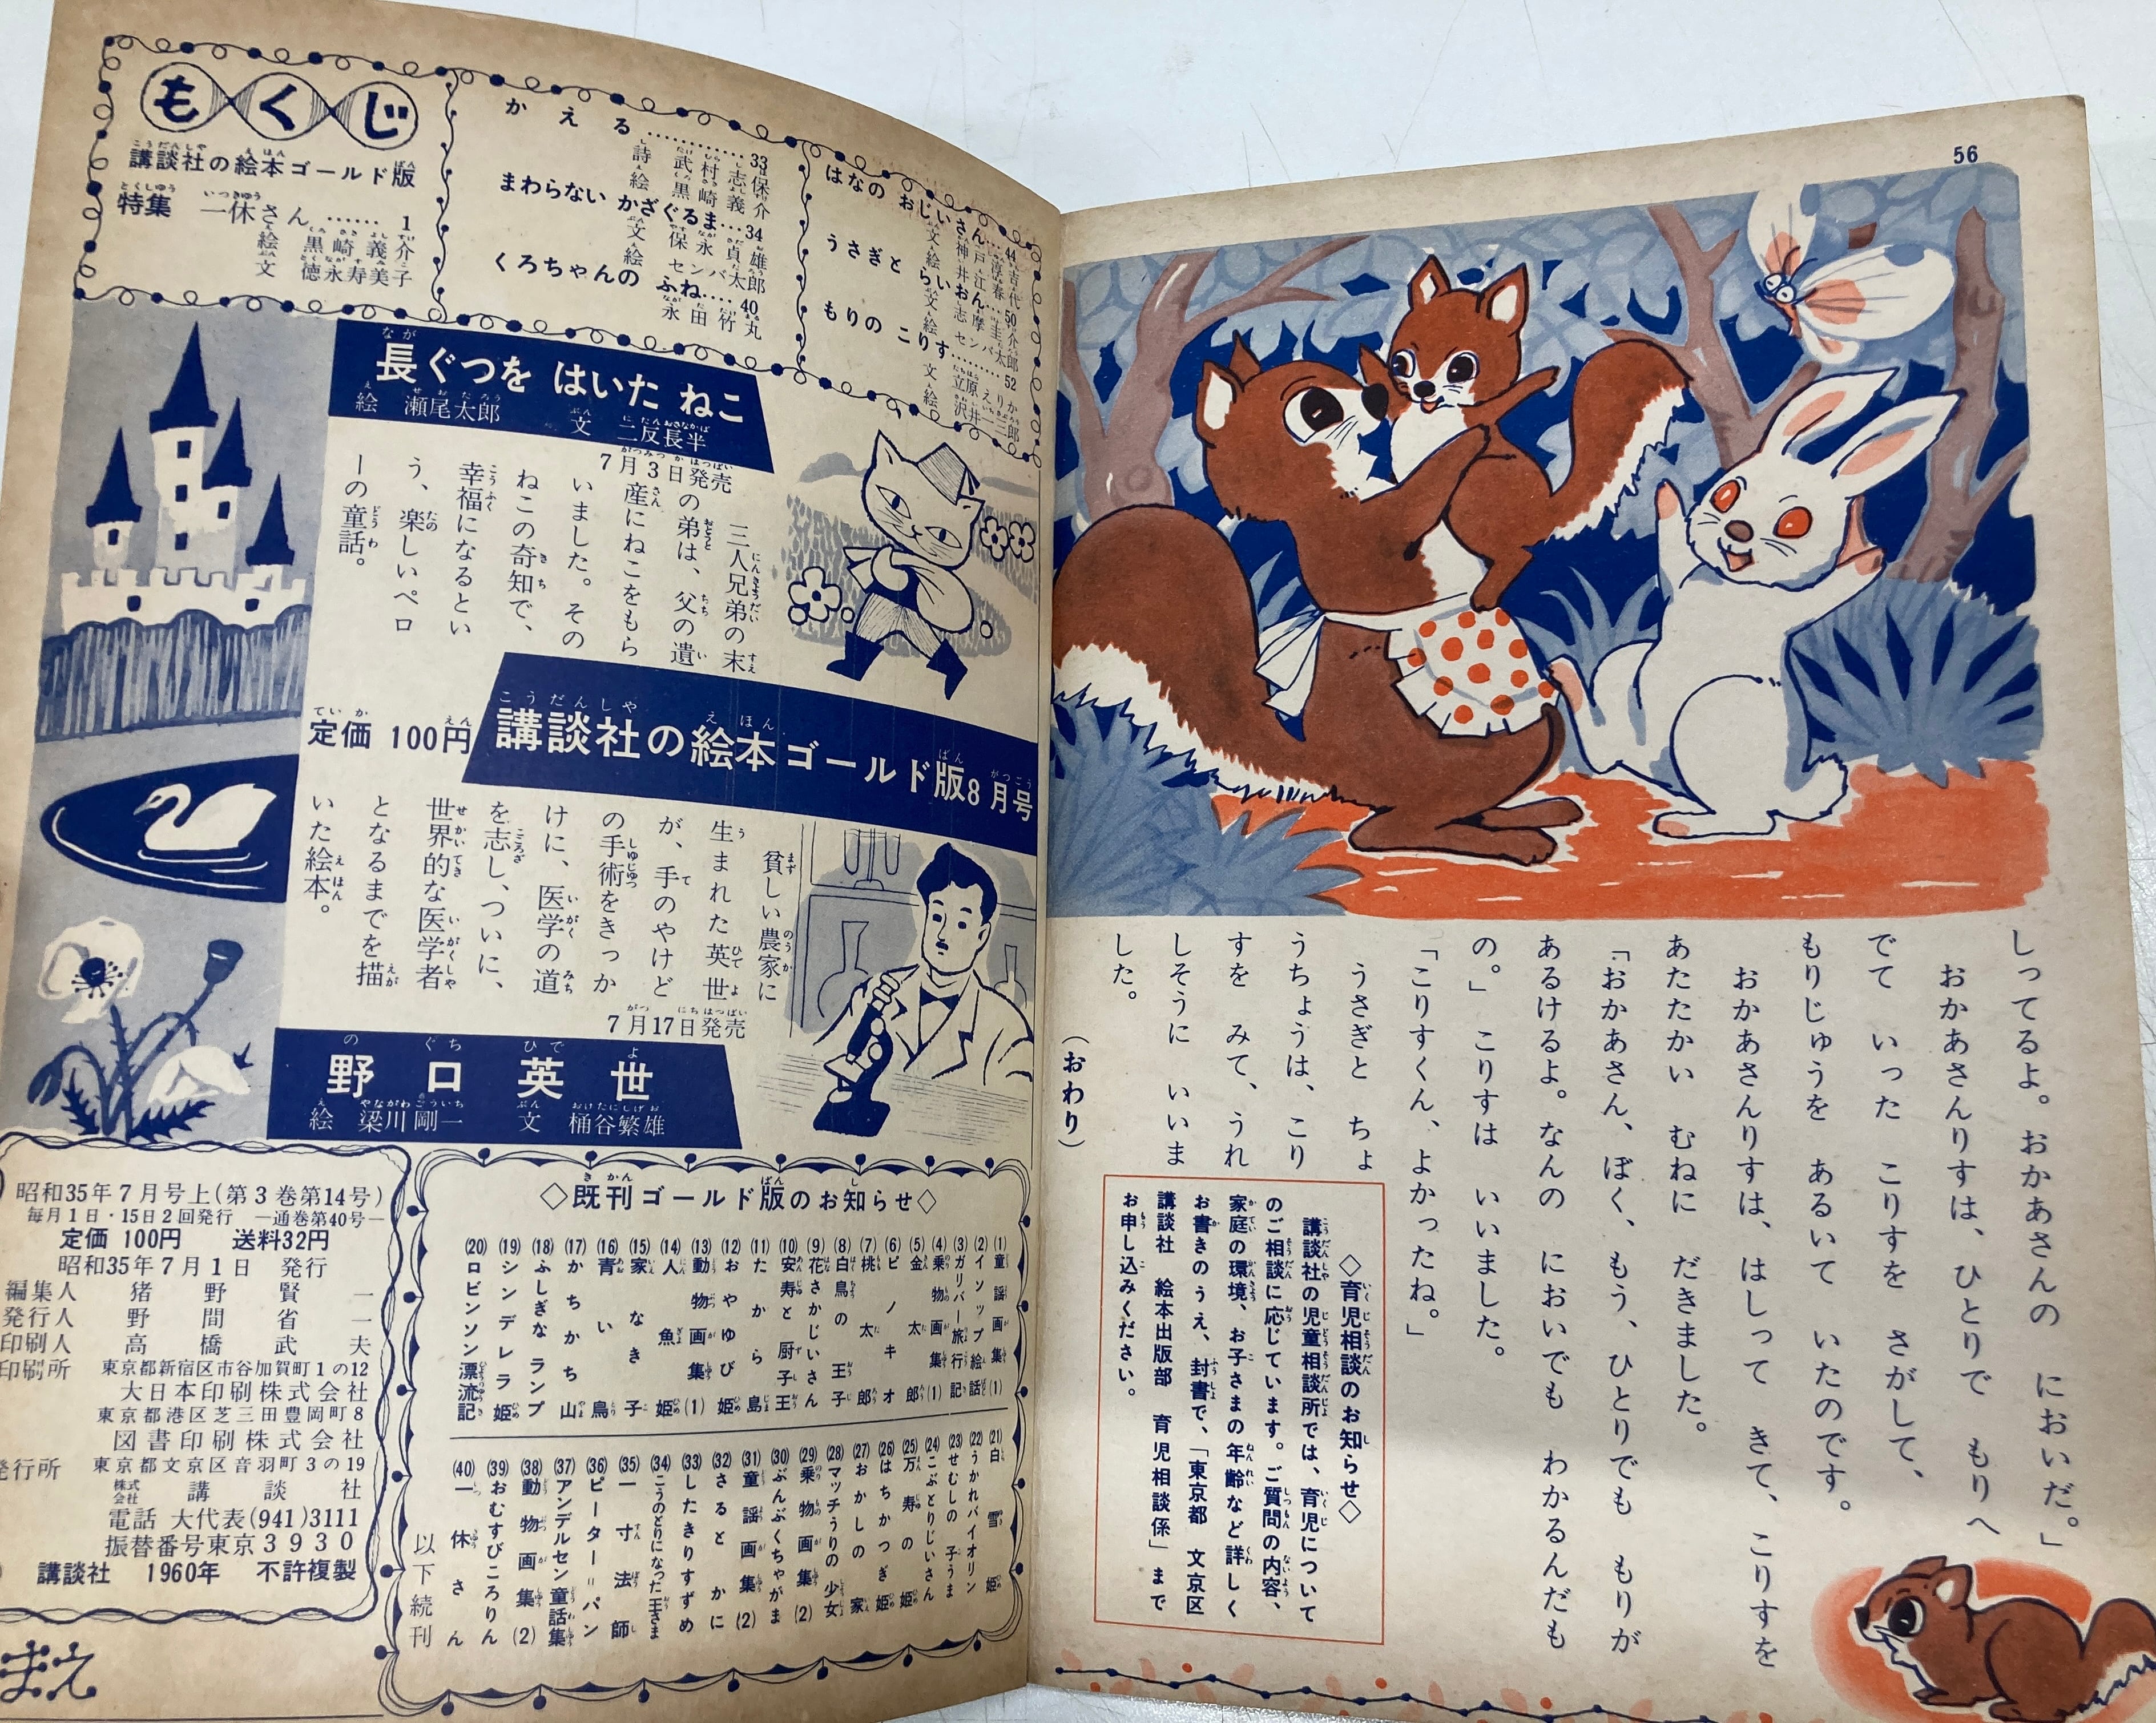 もくじ
講談社の絵本ゴールド版
特集 一休さん…… 1
絵 黒崎義介
文 徳永寿美子
かえる………… 33
詩 武村志保
絵 黒崎義介
まわらない かざぐるま… 34
文 保永貞雄
絵 センバ太郎
くろちゃんの ふね…… 40
永田竹丸
はなの おじいさん… 44
文 神戸淳吉
絵 井江春代
うさぎと らいおん… 50
文 志摩圭介
絵 センバ太郎
もりの こりす……… 52
文 立原えりか
絵 沢井一三郎
長ぐつを はいた ねこ
絵 瀬尾太郎 文 二反長半
7月3日発売
三人兄弟の末
の弟は、父の遺
産にねこをもら
いました。その
ねこの奇知で、
幸福になるとい
う、楽しいペロ
ーの童話。
定価 100円
講談社の絵本ゴールド版8月号
貧しい農家に
生まれた英世
が、手のやけど
の手術をきっか
けに、医学の道
を志し、ついに、
世界的な医学者
となるまでを描
いた絵本。
7月17日発売
野口英世
絵 梁川剛一 文 桶谷繁雄
昭和35年7月号上(第3巻第14号)
毎月1日・15日2回発行 —通巻第40号—
定価 100円 送料32円
昭和35年7月1日 発行
編集人 猪野賢一
発行人 野間省一
印刷人 高橋武夫
印刷所 東京都新宿区市谷加賀町1の12
大日本印刷株式会社
東京都港区芝三田豊岡町8
図書印刷株式会社
発行所 東京都文京区音羽町3の19
株式会社 講談社
電話 大代表(941)3111
振替番号東京3930
講談社 1960年 不許複製
まえ
◇既刊ゴールド版のお知らせ◇
(1)童謡画集(1)
(2)イソップ絵話
(3)ガリバー旅行記
(4)乗物画集(1)
(5)金太郎
(6)ピノキオ
(7)桃太郎
(8)白鳥の王子
(9)花さかじいさん
(10)安寿と厨子王
(11)たから島
(12)おやゆび姫
(13)動物画集(1)
(14)人魚姫
(15)家なき子
(16)青い鳥
(17)かちかち山
(18)ふしぎなランプ
(19)シンデレラ姫
(20)ロビンソン漂流記
(21)白雪姫
(22)うかれバイオリン
(23)せむしの子うま
(24)こぶとりじいさん
(25)万寿の姫
(26)はちかつぎ姫
(27)おかしの家
(28)マッチうりの少女
(29)乗物画集(2)
(30)ぶんぶくちゃがま
(31)童謡画集(2)
(32)さるとかに
(33)したきりすずめ
(34)こうのとりになった王さま
(35)一寸法師
(36)ピーター=パン
(37)アンデルセン童話集
(38)動物画集(2)
(39)おむすびころりん
(40)一休さん
以下続刊
56
しってるよ。おかあさんの においだ。」
おかあさんりすは、ひとりで もりへ
でて いった こりすを さがして、
もりじゅうを あるいて いたのです。
おかあさんりすは、はしって きて、こりすを
あたたかい むねに だきました。
「おかあさん、ぼく、もう、ひとりでも もりが
あるけるよ。なんの においでも わかるんだも
の。」 こりすは いいました。
「こりすくん、よかったね。」
うさぎと ちょ
うちょうは、こり
すを みて、うれ
しそうに いいま
した。
(おわり)
◇育児相談のお知らせ◇
講談社の児童相談所では、育児について
のご相談に応じています。ご質問の内容、
家庭の環境、お子さまの年齢など詳しく
お書きのうえ、封書で、「東京都 文京区
講談社 絵本出版部 育児相談係」まで
お申し込みください。